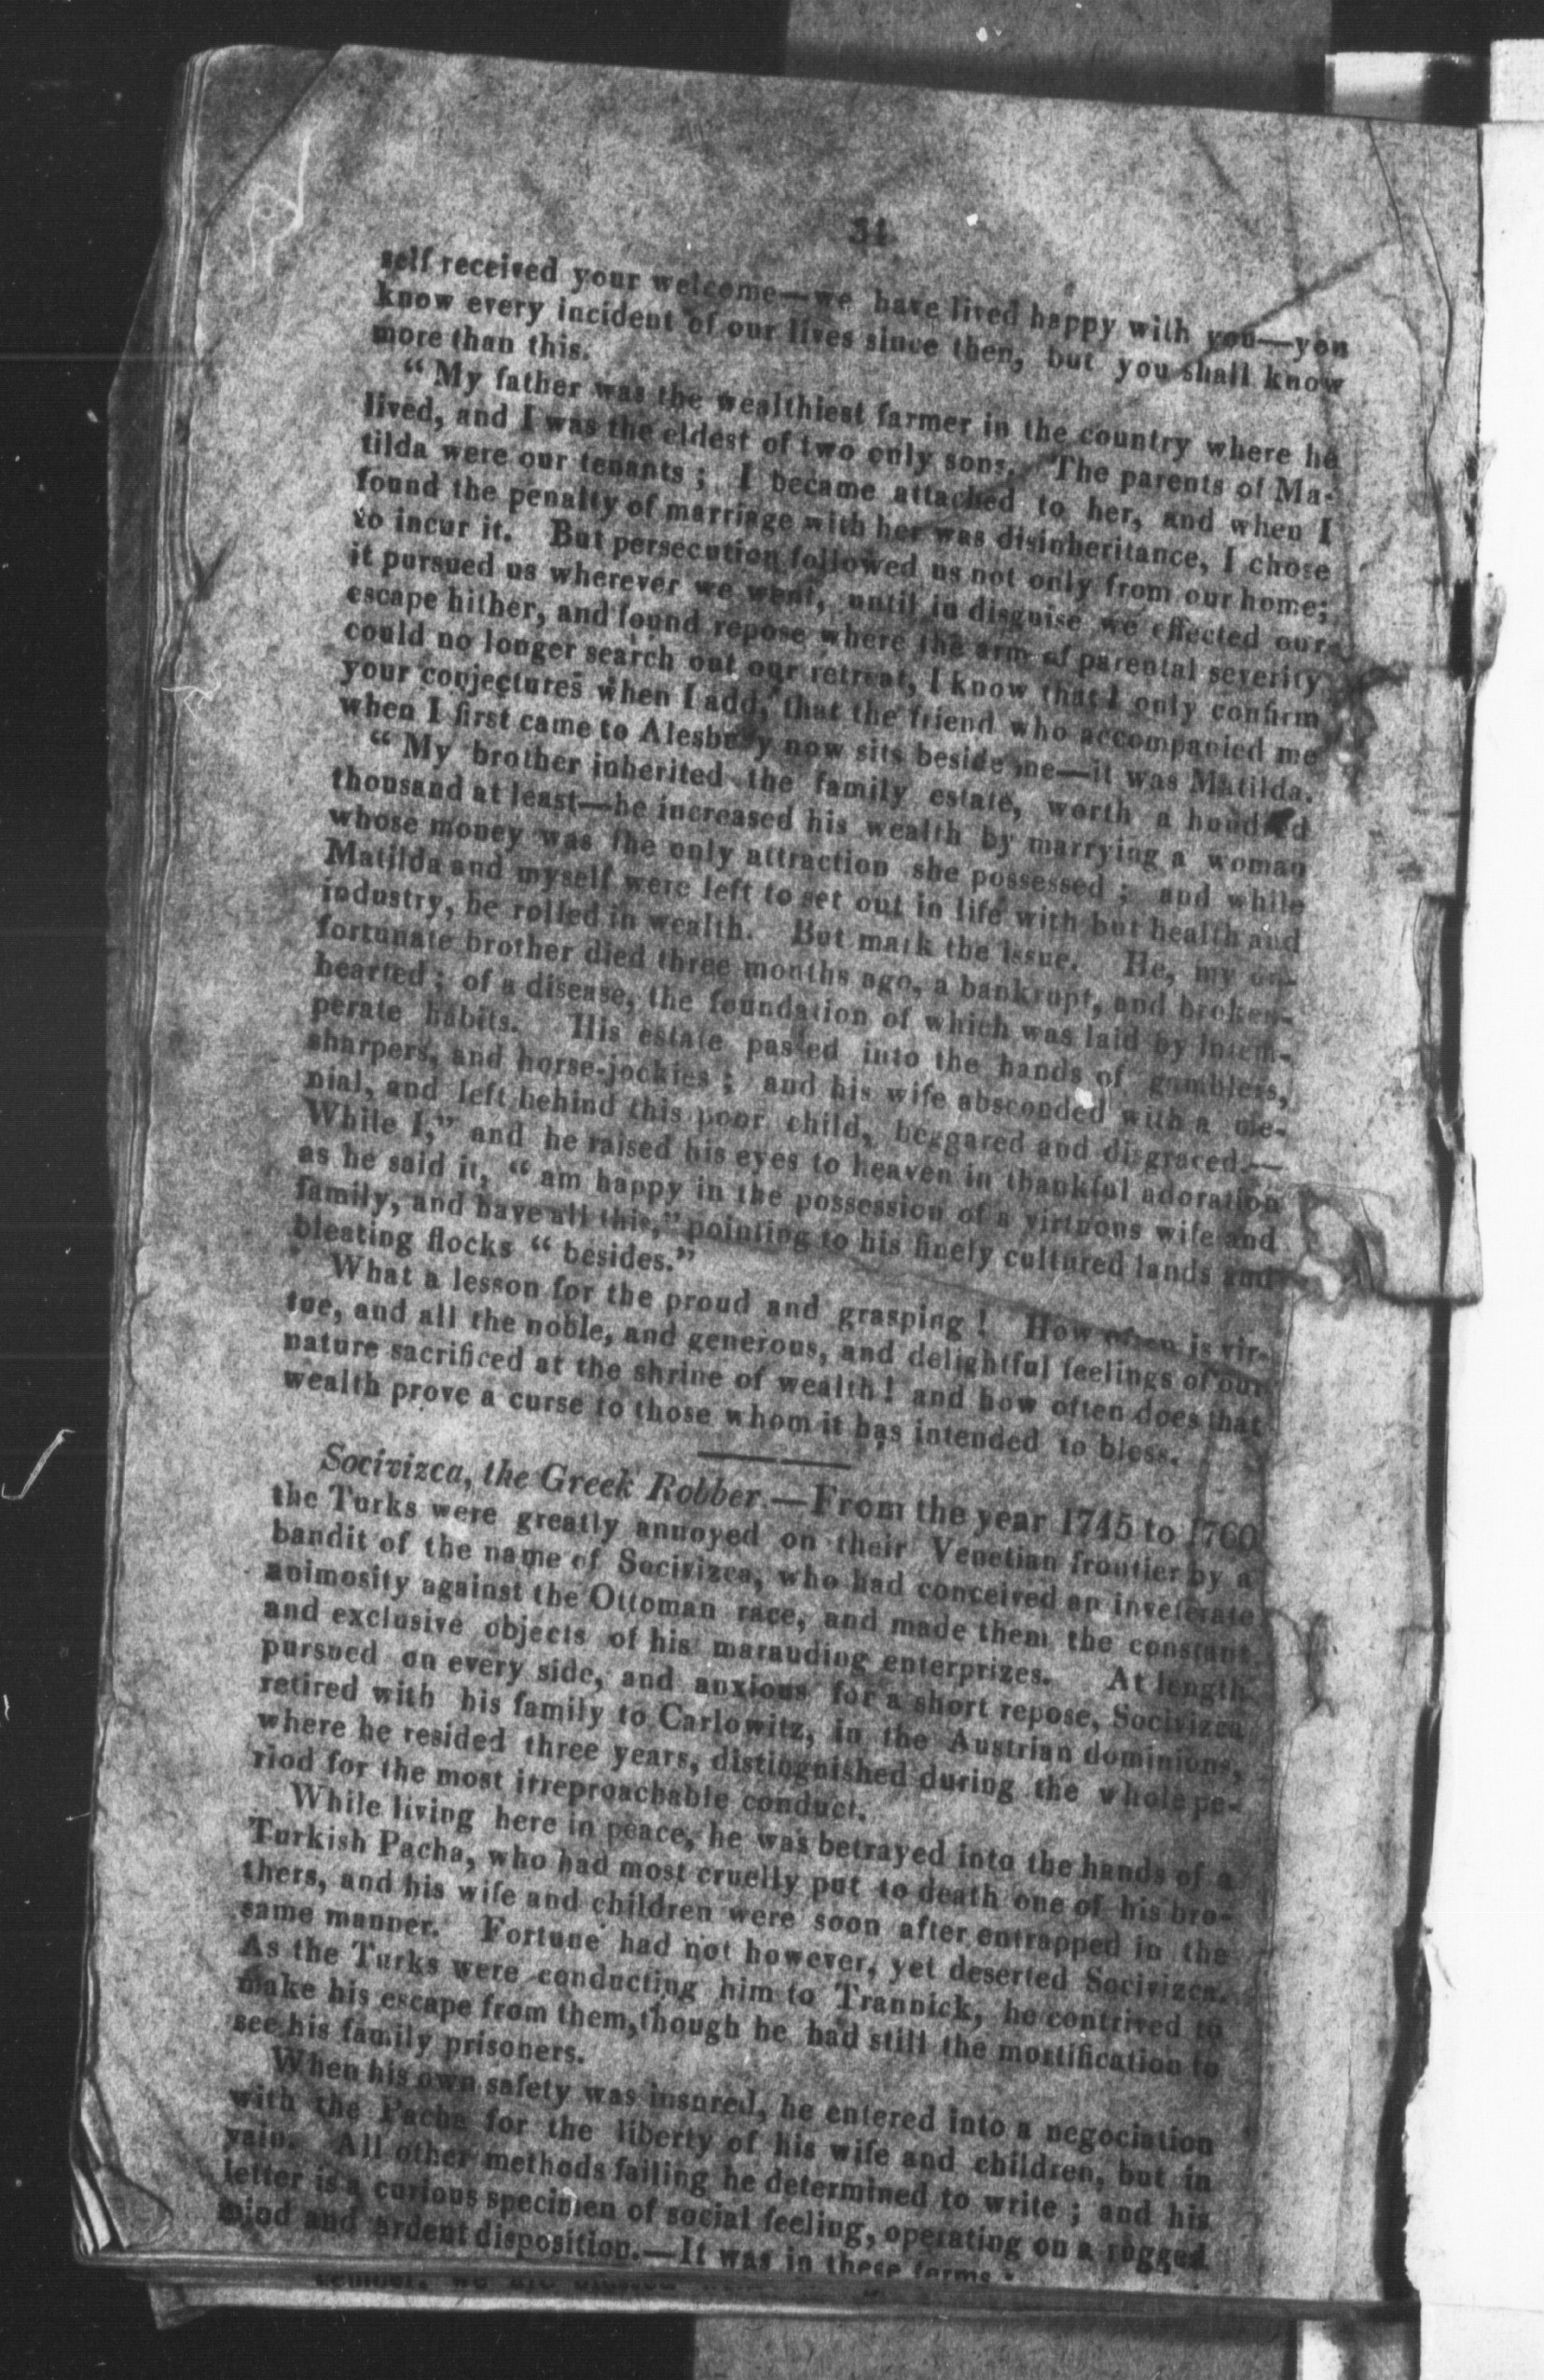 34
self received your welcome—we have lived happy with you—you
know every incident of our lives since then, but you shall know
more than this.
"My father was the wealthiest farmer in the country where he
lived, and I was the eldest of two only sons. The parents of Ma-
tilda were our tenants; I became attached to her, and when I
found the penalty of marriage with her was disinheritance, I chose
to incur it. But persecution followed us not only from our home;
it pursued us wherever we went, until in disguise we effected our
escape hither, and found repose where the arm of parental severity
could no longer search out our retreat, I know that I only confirm
your conjectures when I add, that the friend who accompanied me
when I first came to Alesbury now sits beside me—it was Matilda.
"My brother inherited the family estate, worth a hundred
thousand at least—he increased his wealth by marrying a woman
whose money was the only attraction she possessed; and while
Matilda and myself were left to set out in life with but health and
industry, he rolled in wealth. But mark the issue. He, my un-
fortunate brother died three months ago, a bankrupt, and broken-
hearted; of a disease, the foundation of which was laid by intem-
perate habits. His estate passed into the hands of gamblers,
sharpers, and horse-jockies; and his wife absconded with a me-
nial, and left behind this poor child, beggared and disgraced.—
While I," and he raised his eyes to heaven in thankful adoration
as he said it, "am happy in the possession of a virtuous wife and
family, and have all this," pointing to his finely cultured lands and
bleating flocks "besides."
What a lesson for the proud and grasping! How often is vir-
tue, and all the noble, and generous, and delightful feelings of our
nature sacrificed at the shrine of wealth! and how often does that
wealth prove a curse to those whom it has intended to bless.
Socivizca, the Greek Robber.—From the year 1745 to 1760
the Turks were greatly annoyed on their Venetian frontier by a
bandit of the name of Socivizca, who had conceived an inveterate
animosity against the Ottoman race, and made them the constant
and exclusive objects of his marauding enterprizes. At length
pursued on every side, and anxious for a short repose, Socivizca
retired with his family to Carlowitz, in the Austrian dominions,
where he resided three years, distinguished during the whole pe-
riod for the most irreproachable conduct.
While living here in peace, he was betrayed into the hands of a
Turkish Pacha, who had most cruelly put to death one of his bro-
thers, and his wife and children were soon after entrapped in the
same manner. Fortune had not however, yet deserted Socivizca.
As the Turks were conducting him to Trannick, he contrived to
make his escape from them, though he had still the mortification to
see his family prisoners.
When his own safety was insured, he entered into a negociation
with the Pacha for the liberty of his wife and children, but in
vain. All other methods failing he determined to write; and his
letter is a curious specimen of social feeling, operating on a rugged
mind and ardent disposition.—It was in these terms: